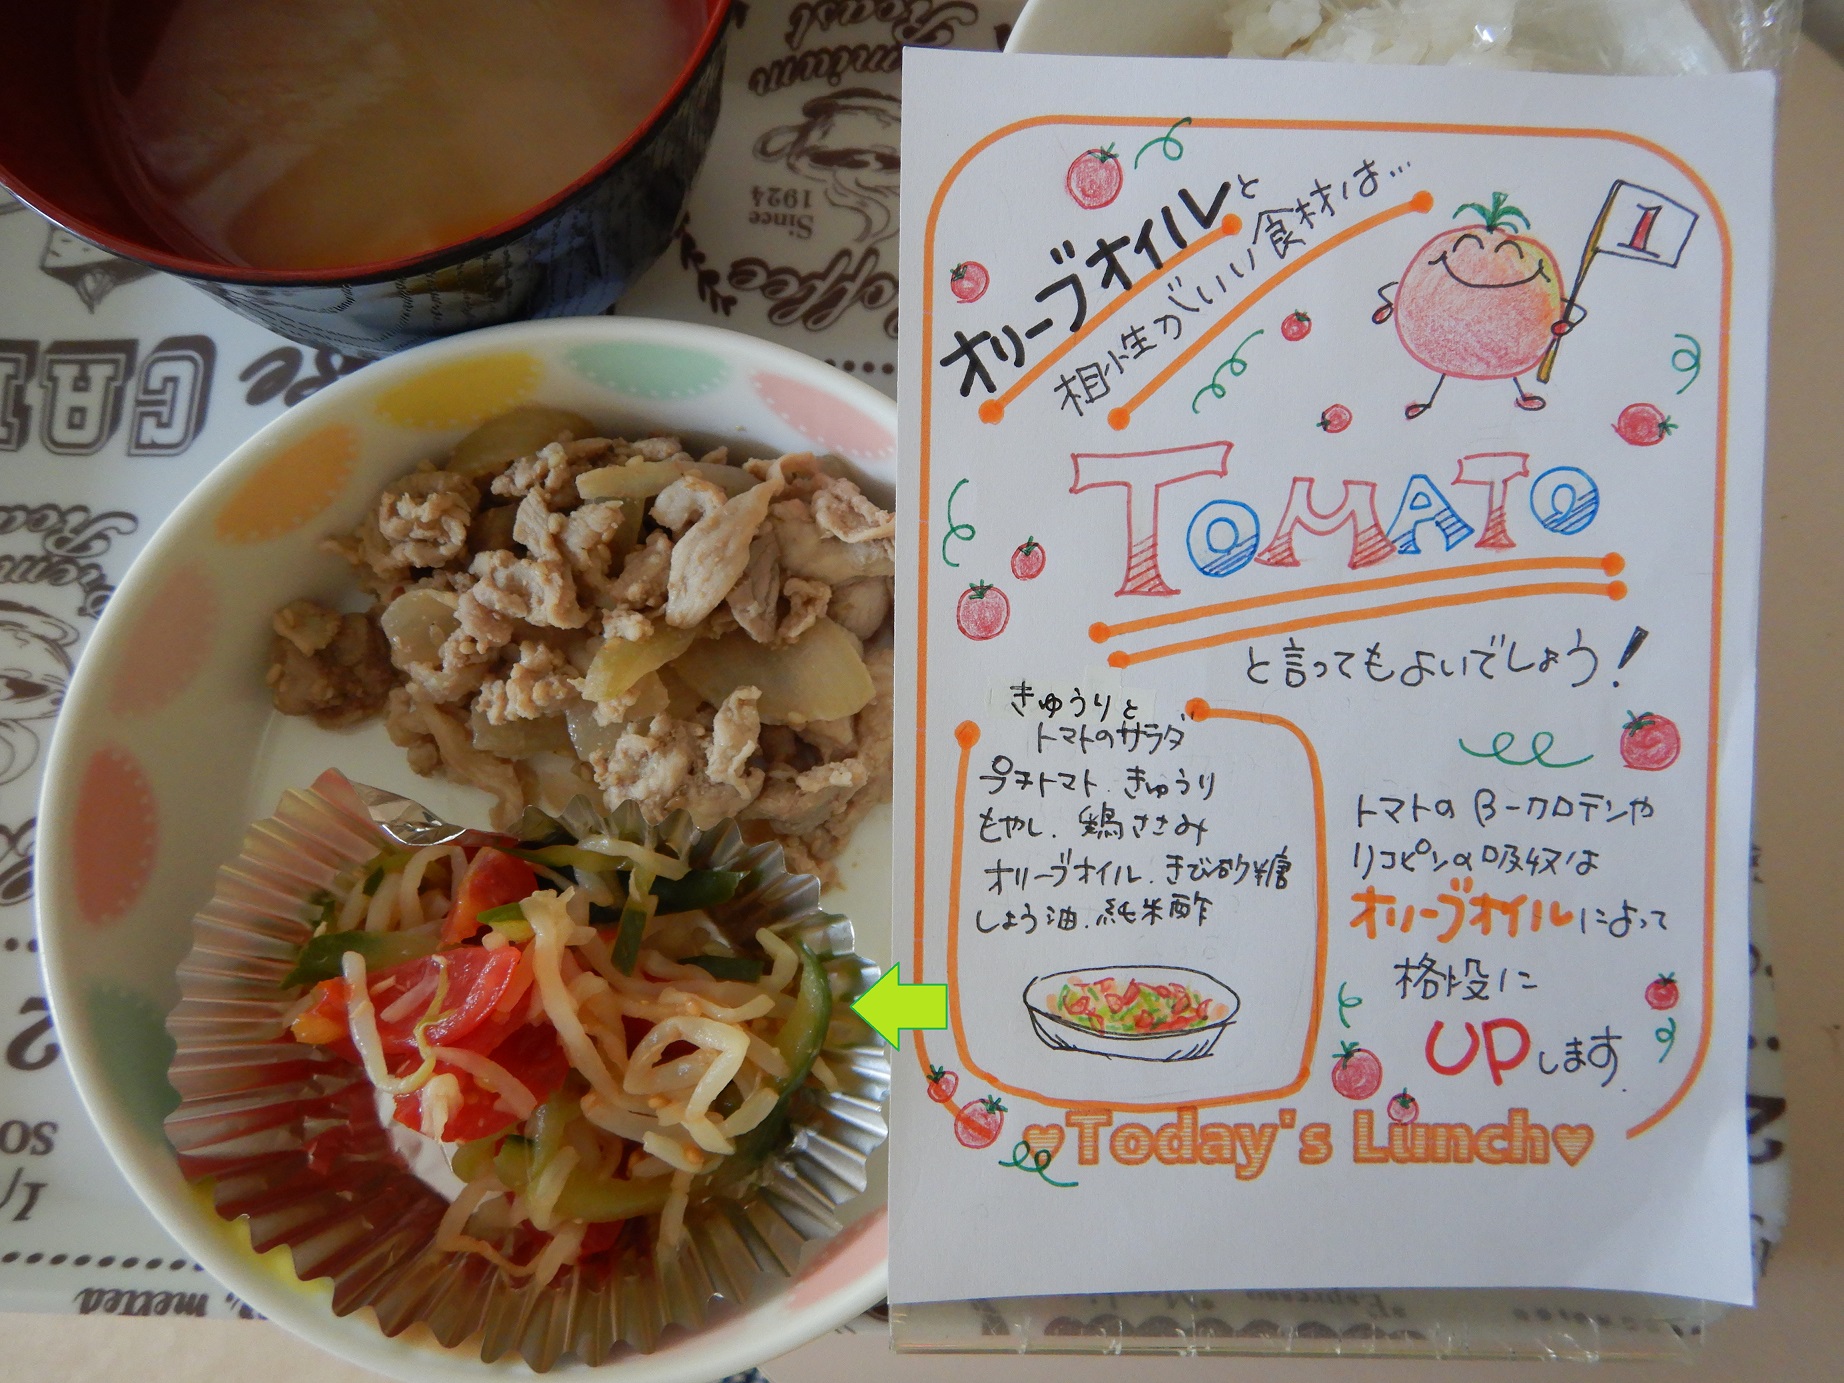 Roast
emium
Since
1924
Coffee
CAF
オリーブオイルと
相性がいい食材は…
1
TOMATO
と言ってもよいでしょう!
きゅうりと
トマトのサラダ
プチトマト.きゅうり
もやし.鶏ささみ
オリーブオイル.きび砂糖
しょう油.純米酢
トマトのβ-カロテンや
リコピンの吸収は
オリーブオイルによって
格段に
UPします.
♥Today's Lunch♥